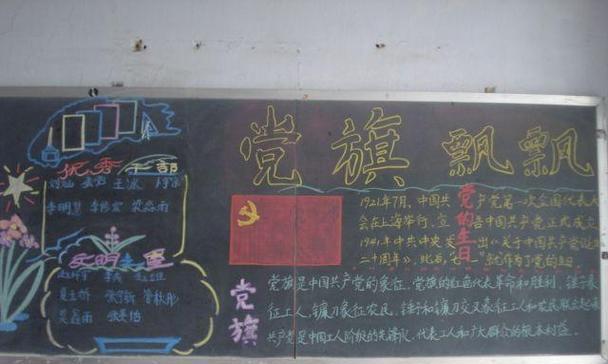 党旗飘飘
优秀干部
王冰
李明慧 李修宏 梁淼雨
文明之星
党的生日
1921年7月，中国共产党第一次全国代表大
会在上海举行，宣告中国共产党正式成立
1941年中共中央发出《关于中国共产党诞生
二十周年》，此后，七一就作为了党的生日
党旗
党旗是中国共产党的象征，党旗的红色代表革命和胜利，锤子象
征工人，镰刀象征农民，锤子和镰刀交叉象征工人和农民联合起来
共产党是中国工人阶级的先锋队，代表工人和广大群众的根本利益。